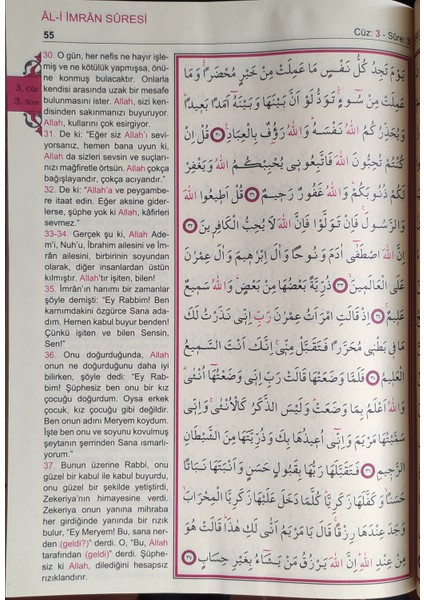 ÂL-İ İMRÂN SÛRESİ
55
Cüz: 3 - Sûre:
3. Cüz
3. Sûre
30. O gün, her nefis ne hayır işle-
miş ve ne kötülük yapmışsa, önü-
ne konmuş bulacaktır. Onlarla
kendisi arasında uzak bir mesafe
bulunmasını ister. Allah, sizi ken-
disinden sakınmanızı buyuruyor.
Allah, kullarını çok esirgiyor.
31. De ki: “Eğer siz Allah'ı sevi-
yorsanız, hemen bana uyun ki,
Allah da sizleri sevsin ve suçları-
nızı mağfiretle örtsün. Allah çokça
bağışlayandır, çokça acıyandır.”
32. De ki: “Allah'a ve peygambe-
re itaat edin. Eğer aksine gider-
lerse, şüphe yok ki Allah, kâfirleri
sevmez.”
33-34. Gerçek şu ki, Allah Ade-
m'i, Nuh'u, İbrahim ailesini ve İm-
rân ailesini, birbirinin soyundan
olarak, diğer insanlardan üstün
kılmıştır. Allah'tır işiten, bilen!
35. İmrân'ın hanımı bir zamanlar
şöyle demişti: “Ey Rabbim! Ben
karnımdakini özgürce Sana ada-
dım. Hemen kabul buyur benden!
Çünkü işiten ve bilen Sensin,
Sen!”
36. Onu doğurduğunda, Allah
onun ne doğurduğunu daha iyi
bilirken, şöyle dedi: “Ey Rab-
bim! Şüphesiz ben onu bir kız
çocuğu doğurdum. Oysa erkek
çocuk, kız çocuğu gibi değildir.
Ben onun adını Meryem koydum.
İşte ben onu ve soyunu kovulmuş
şeytanın şerrinden Sana ısmarlı-
yorum.”
37. Bunun üzerine Rabbi, onu
güzel bir kabul ile kabul buyurdu,
onu güzel bir şekilde yetiştirdi,
Zekeriya'nın himayesine verdi.
Zekeriya onun yanına mihraba
her girdiğinde yanında bir rızık
bulur, “Ey Meryem! Bu, sana ner-
den (geldi?)” derdi. O, “Bu, Allah
tarafından (geldi)” derdi. Şüphe-
siz ki Allah, dilediğini hesapsız
rızıklandırır.
يَوْمَ تَجِدُ كُلُّ نَفْسٍ مَا عَمِلَتْ مِنْ خَيْرٍ مُحْضَرًا وَمَا
عَمِلَتْ مِنْ سُوءٍ تَوَدُّ لَوْ أَنَّ بَيْنَهَا وَبَيْنَهُ أَمَدًا بَعِيدًا
وَيُحَذِّرُكُمُ اللهُ نَفْسَهُ وَاللهُ رَؤُفٌ بِالْعِبَادِ ٣٠ قُلْ اِنْ
كُنْتُمْ تُحِبُّونَ اللهَ فَاتَّبِعُونِى يُحْبِبْكُمُ اللهُ وَيَغْفِرْ
لَكُمْ ذُنُوبَكُمْ وَاللهُ غَفُورٌ رَحِيمٌ ٣١ قُلْ اَطِيعُوا اللهَ
وَالرَّسُولَ فَاِنْ تَوَلَّوْا فَاِنَّ اللهَ لَا يُحِبُّ الْكَافِرِينَ ٣٢
اِنَّ اللهَ اصْطَفٰى اٰدَمَ وَنُوحًا وَاٰلَ اِبْرٰهِيمَ وَاٰلَ عِمْرٰنَ
عَلَى الْعَالَمِينَ ٣٣ ذُرِّيَّةً بَعْضُهَا مِنْ بَعْضٍ وَاللهُ سَمِيعٌ
عَلِيمٌ ٣٤ اِذْ قَالَتِ امْرَاَتُ عِمْرٰنَ رَبِّ اِنِّى نَذَرْتُ لَكَ
مَا فِى بَطْنِى مُحَرَّرًا فَتَقَبَّلْ مِنِّى اِنَّكَ اَنْتَ السَّمِيعُ
الْعَلِيمُ ٣٥ فَلَمَّا وَضَعَتْهَا قَالَتْ رَبِّ اِنِّى وَضَعْتُهَا اُنْثٰى
وَاللهُ اَعْلَمُ بِمَا وَضَعَتْ وَلَيْسَ الذَّكَرُ كَالْاُنْثٰى وَاِنِّى
سَمَّيْتُهَا مَرْيَمَ وَاِنِّى اُعِيذُهَا بِكَ وَذُرِّيَّتَهَا مِنَ الشَّيْطَانِ
الرَّجِيمِ ٣٦ فَتَقَبَّلَهَا رَبُّهَا بِقَبُولٍ حَسَنٍ وَاَنْبَتَهَا نَبَاتًا
حَسَنًا وَكَفَّلَهَا زَكَرِيَّا كُلَّمَا دَخَلَ عَلَيْهَا زَكَرِيَّا الْمِحْرَابَ
وَجَدَ عِنْدَهَا رِزْقًا قَالَ يَا مَرْيَمُ اَنّٰى لَكِ هٰذَا قَالَتْ هُوَ
مِنْ عِنْدِ اللهِ اِنَّ اللهَ يَرْزُقُ مَنْ يَشَاءُ بِغَيْرِ حِسَابٍ ٣٧